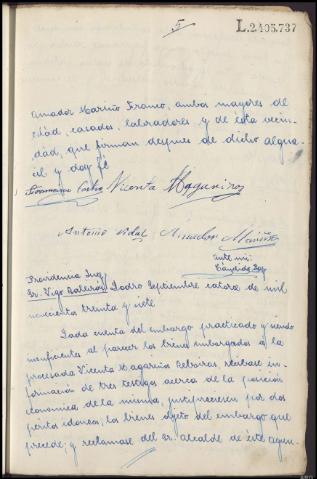 5
L.2495.737
Amador Mariño Franco, ambos mayores de
edad, casados, labradores y de esta vecin-
dad, que firman despues de dicho algua-
cil y doy fé
Vicenta Magariños
Antonio Vidal Amador Mariño
Ante mi:
Providencia Juez
Sr. Vigo Padro Septiembre catorce de mil
novecientos treinta y siete
Dada cuenta del embargo practicado y siendo
insuficientes al parecer los bienes embargados a la
procesada Vicenta Magariños recíbase in-
formación de tres testigos acerca de la posición
económica de la misma, justipreciesen por dos
peritos idoneos, los bienes objeto del embargo que
precede; y reclamese del Sr. Alcalde de este Ayun-